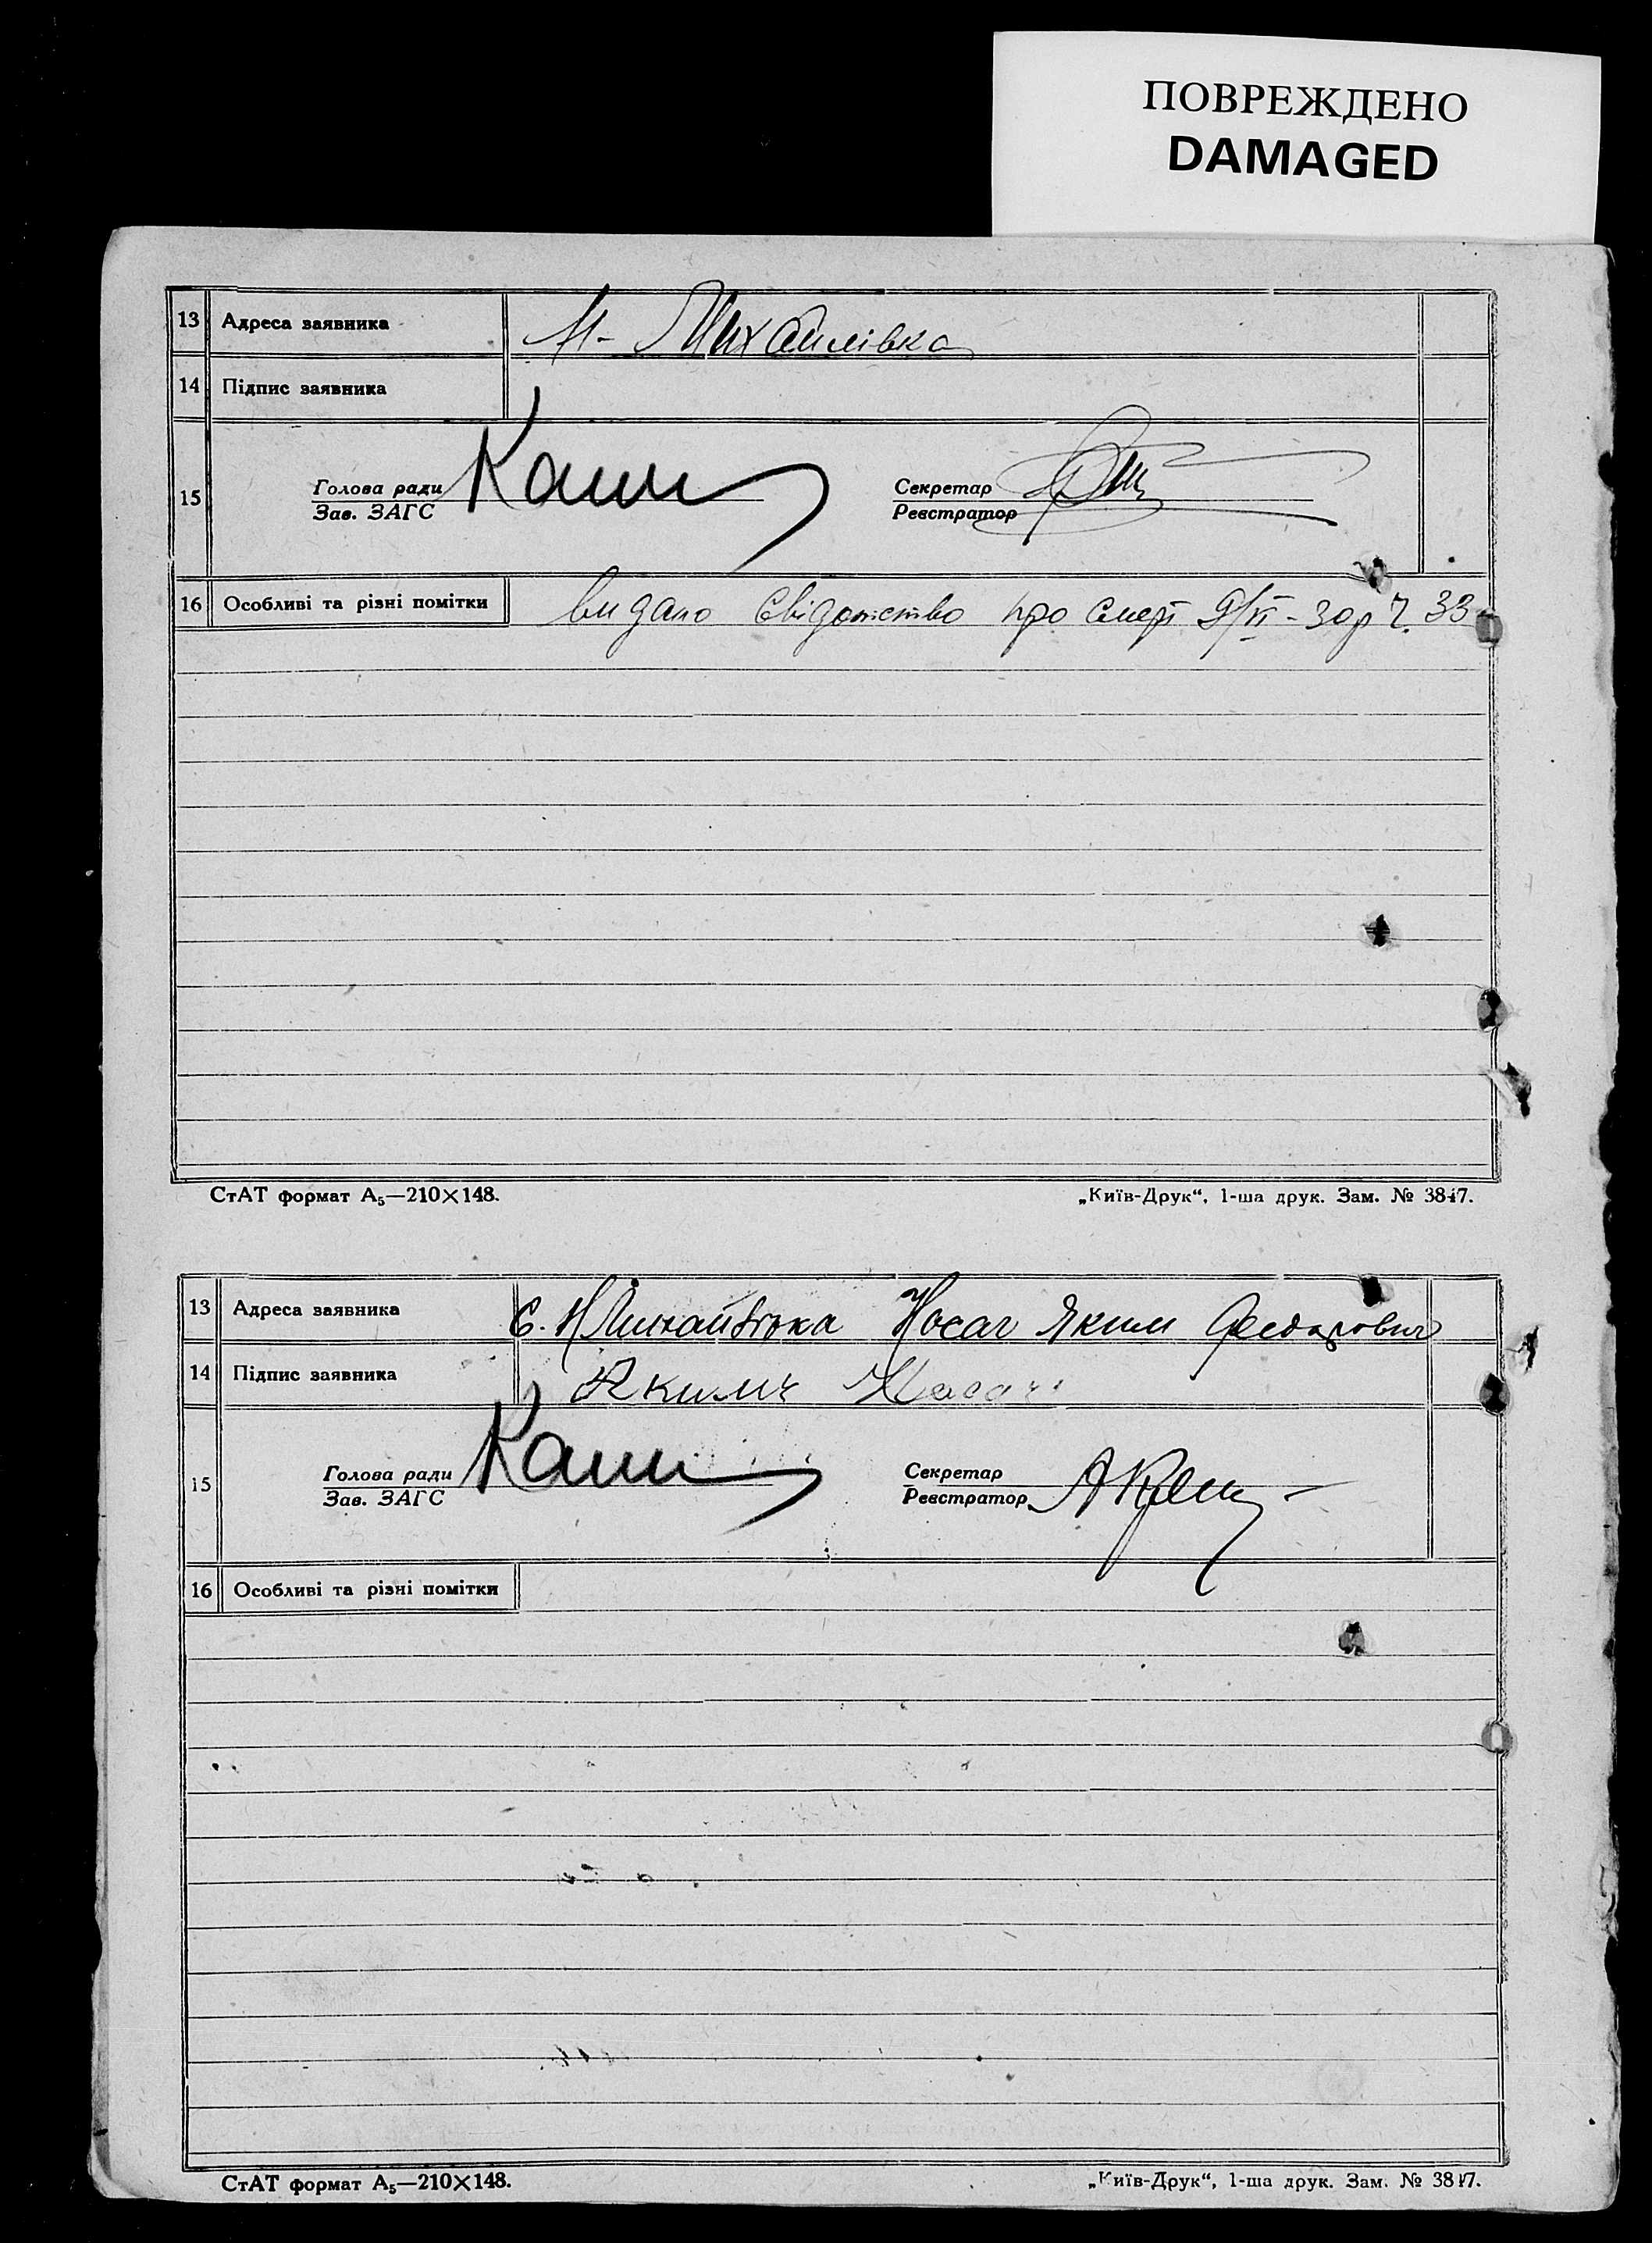 ПОВРЕЖДЕНО
DAMAGED
13 Адреса заявника М- Михайлівка
14 Підпис заявника
15 Голова ради
Зав. ЗАГС
Секретар
Реєстратор
16 Особливі та різні помітки видано Свідоцтво про смерт 9/VI-30р Ч. 33
СтАТ формат А₅—210×148.
„Київ-Друк“, 1-ша друк. Зам. № 3847.
13 Адреса заявника Носач Яким Федорович
14 Підпис заявника Якимч Насач
15 Голова ради
Зав. ЗАГС
Секретар
Реєстратор
16 Особливі та різні помітки
СтАТ формат А₅—210×148.
„Київ-Друк“, 1-ша друк. Зам. № 3847.